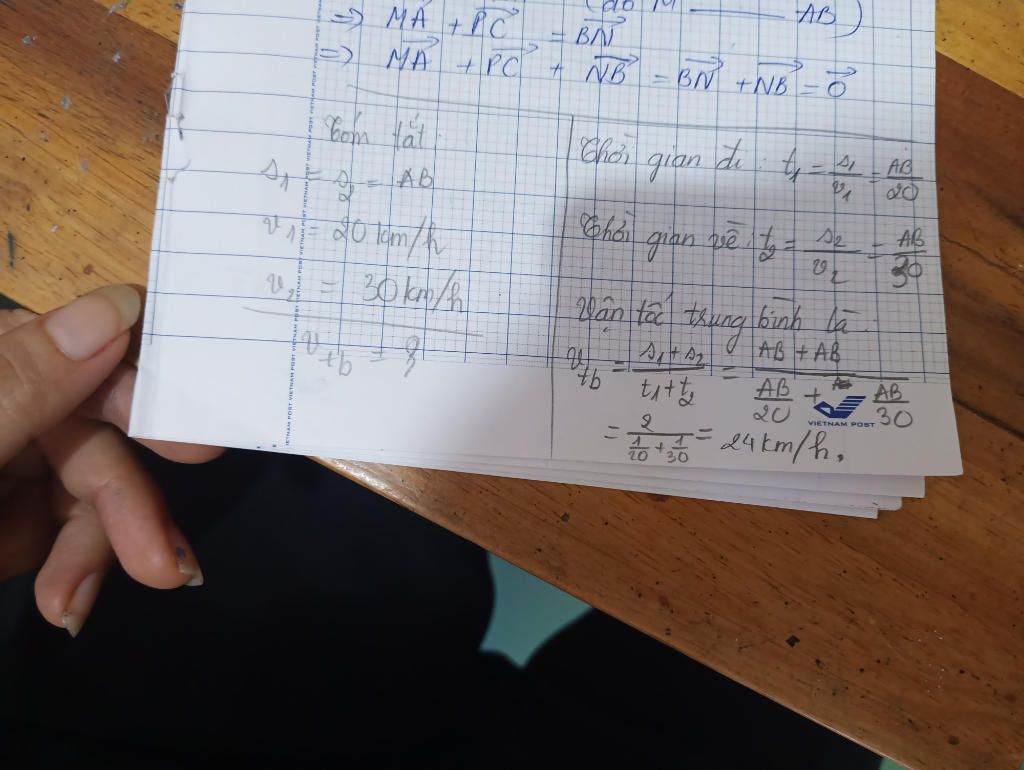 (do M ——— AB)
=> \vec{MA} + \vec{PC} = \vec{BN}
=> \vec{MA} + \vec{PC} + \vec{NB} = \vec{BN} + \vec{NB} = \vec{0}
Tóm tắt:
s_1 = s_2 = AB
v_1 = 20 km/h
v_2 = 30 km/h
v_{tb} = ?
Thời gian đi: t_1 = \frac{s_1}{v_1} = \frac{AB}{20}
Thời gian về: t_2 = \frac{s_2}{v_2} = \frac{AB}{30}
Vận tốc trung bình là:
v_{tb} = \frac{s_1 + s_2}{t_1 + t_2} = \frac{AB + AB}{\frac{AB}{20} + \frac{AB}{30}}
= \frac{2}{\frac{1}{20} + \frac{1}{30}} = 24 km/h.
VIETNAM POST
VIETNAM POST VIETNAM POST VIETNAM POST VIETNAM POST